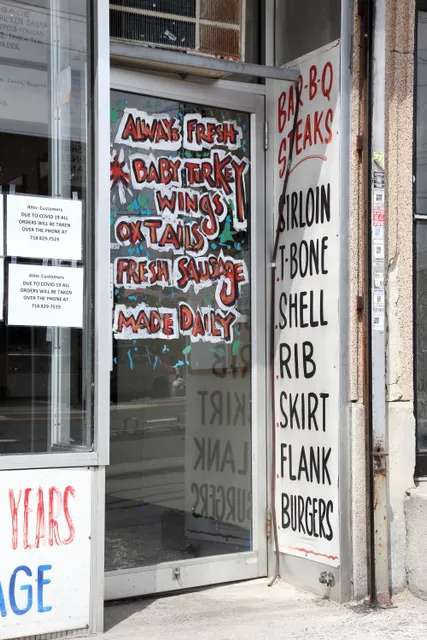 ALWAYS FRESH
BABY TERKEY
WINGS
OXTAILS
FRESH SAUSAGE
MADE DAILY
BAR-B-Q
STEAKS
SIRLOIN
T-BONE
SHELL
RIB
SKIRT
FLANK
BURGERS
Attn: Customers
DUE TO COVID 19 ALL
ORDERS WILL BE TAKEN
OVER THE PHONE AT
718 829-7519
Attn: Customers
DUE TO COVID 19 ALL
ORDERS WILL BE TAKEN
OVER THE PHONE AT
718 829-7519
YEARS
AGE
RIB
SKIRT
FLANK
BURGERS